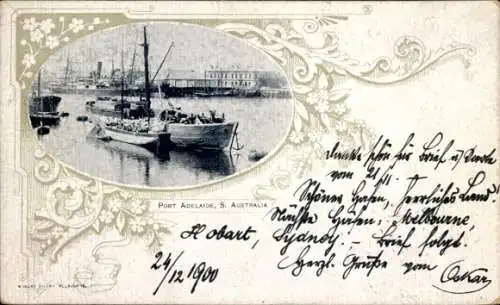 PORT ADELAIDE, S. AUSTRALIA
Danke schön für Brief u/ Karte
vom 21/11. –
Schöner Hafen, herrliches Land!
Nächste Häfen: Melbourne,
Hobart, Sydney! – Brief folgt.
Herzl. Grüße vom Oskar
24/12 1900